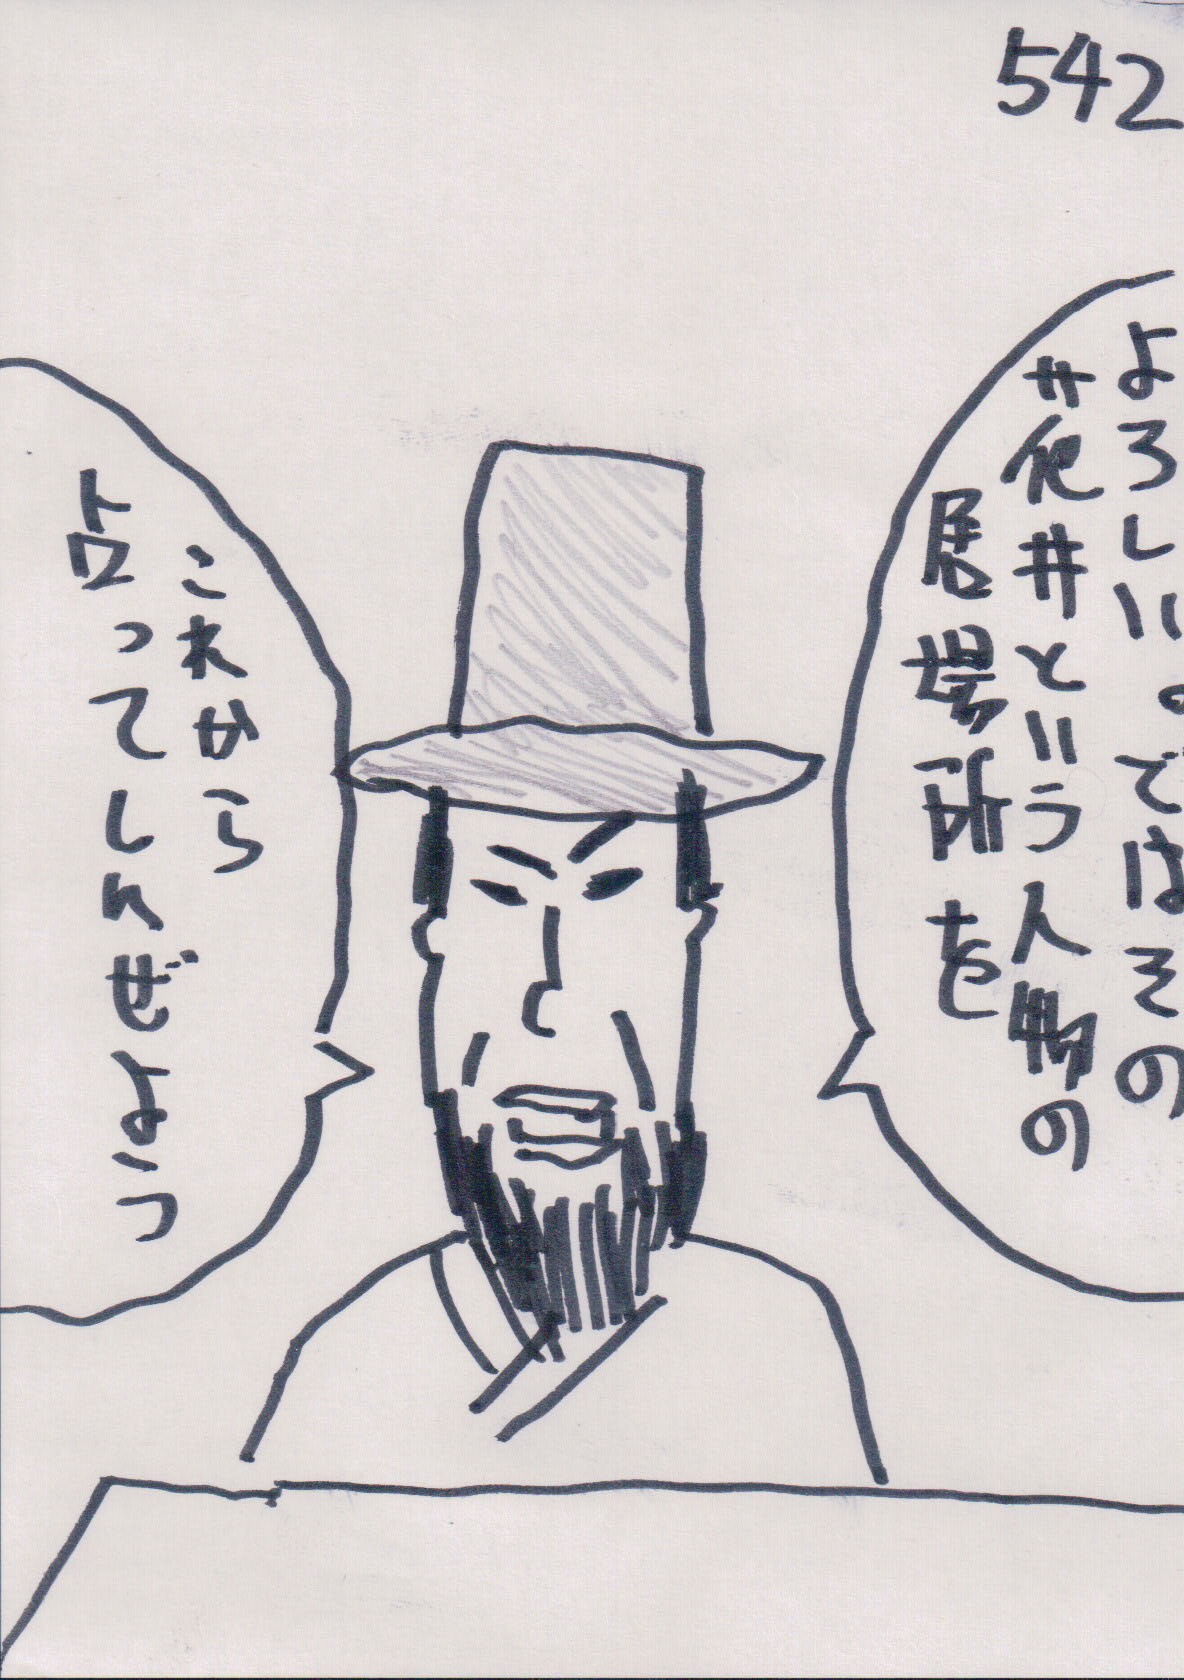 542
よろしい。ではその
花井という人物の
居場所を
これから
占ってしんぜよう